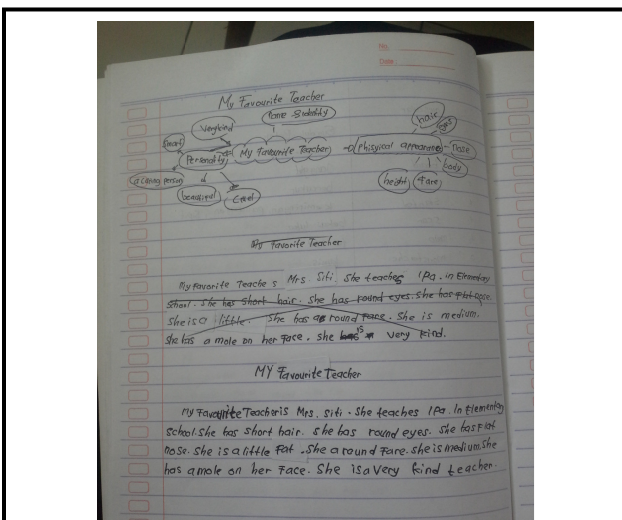 No.
Date:
My Favourite Teacher
hair
Very kind
smart
Personality
My Favourite Teacher
Phisycal appearance
nose
body
a Caring person
beautiful
Cool
height
Face
My Favorite Teacher
My Favorite Teache s Mrs. Siti. She teaches IPa. in Elementary
School. She has short hair. She has round eyes. She has Flat nose.
She is a little. She has a round Face. She is medium.
She has a mole on her Face. She is very kind.
MY Favourite Teacher
My Favourite Teacher is Mrs. Siti. She teaches IPa. In Elementary
School. She has short hair. She has round eyes. She has Flat
nose. She is a little Fat. She a round Face. She is medium. She
has a mole on her Face. She is a Very kind teacher.